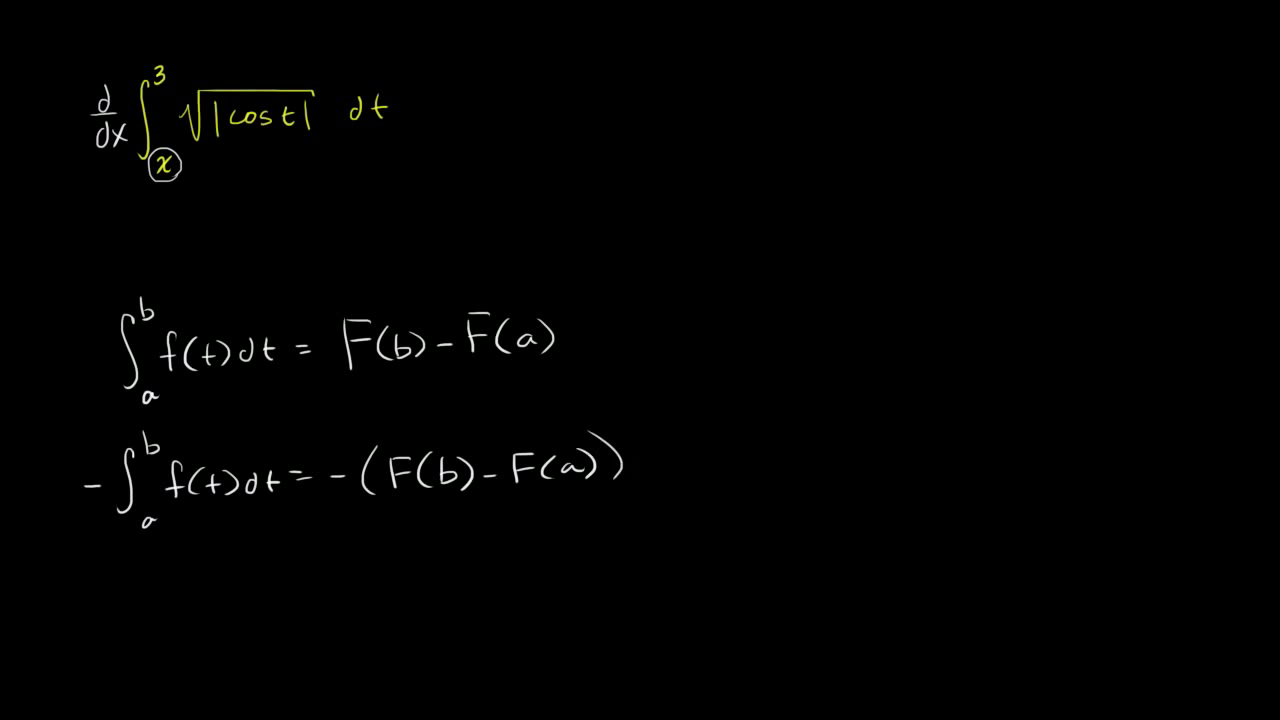 d/dx ∫_x^3 √|cos t| dt
∫_a^b f(t)dt = F(b) - F(a)
- ∫_a^b f(t)dt = - (F(b) - F(a))